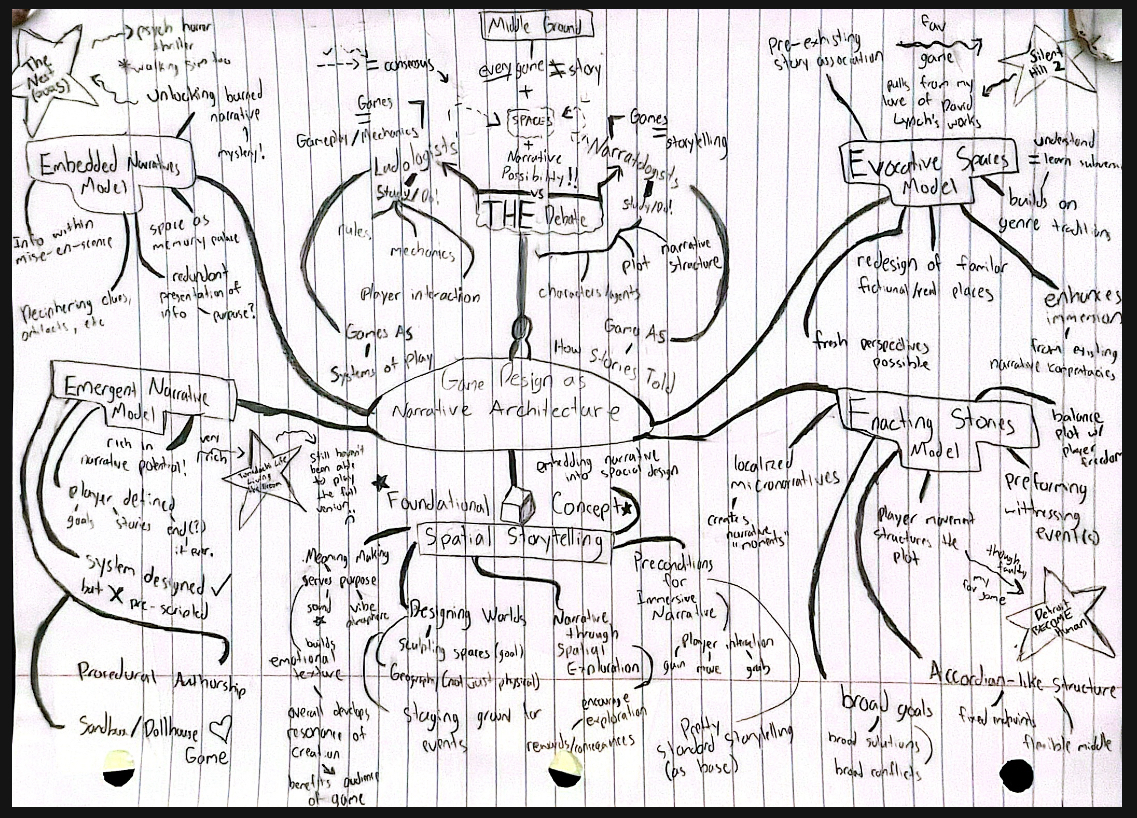 Middle Ground
every game ≠ story
+
SPACES
+
Narrative
Possibility!!
vs
THE Debate
= consensus
Games
=
Gameplay/Mechanics
Ludologists
Study/Do!
rules
mechanics
player interaction
Games As
Systems of Play
Games
=
storytelling
Narratologists
Study/Do!
plot
narrative
structure
characters/agents
Game As
How Stories Told
The
Nest
psych horror
thriller
* walking sim too
unlocking burned
narrative
mystery!
Embedded Narratives
Model
Info within
mise-en-scene
Deciphering clues,
artifacts, etc
space as
memory palace
redundant
presentation of
info
purpose?
Pre-existing
story association
fav
game
Silent
Hill 2
pulls from my
love of David
Lynch's works
Evocative Spaces
Model
understand
= learn
builds on
genre traditions
redesign of familar
fictional/real places
fresh perspectives
possible
enhances
immersion
from existing
narrative
Game Design as
Narrative Architecture
Emergent Narrative
Model
rich in
narrative potential!
very
rich
Tomodachi Life
Living
the Dream
still haven't
been able
to play
the full
version..
player defined
goals stories end(?)
if ever.
system designed ✓
but X pre-scripted
Procedural Authorship
Sandbox/Dollhouse ♡
Game
embedding narrative
into spacial design
★ Foundational Concept ★
Spatial Storytelling
Meaning Making
serves purpose
sound vibe
* atmosphere
builds
emotional
texture
overall develops
resonance of
creation
benefits audience
of game
Designing Worlds
sculpting spaces (goal)
Geography (not just physical)
staging ground for
events
Narrative
through
Spatial
Exploration
encourage
exploration
rewards/consequences
Preconditions
for
Immersive
Narrative
player interaction
gain move goals
Pretty
standard storytelling
(as base)
Enacting Stories
Model
localized
micronarratives
creates
narrative
"moments"
balance
plot w/
player
freedom
preforming
witnessing
event(s)
player movement
structures the
plot
though
faulty,
my
fav game
Detroit
BECOME
Human
Accordian-like structure
fixed
flexible middle
broad goals
broad solutions
broad conflicts